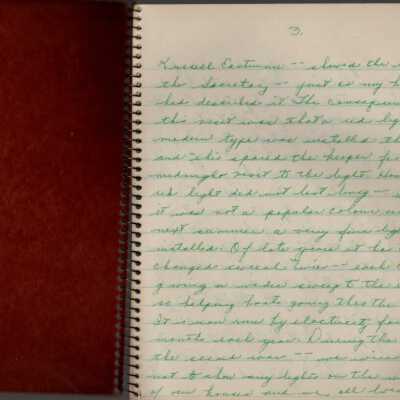 3.
Eastman -- showed the
the Secretary -- just as my
has described it. The consequence
this visit was that a red light
modern type was installed
and this spared the keeper
midnight visit to the light. How
red light did not last long --
it was not a popular colour
next summer a very fine light
installed. Of late years it has
changed several times -- each
giving a wider sweep to the
so helping boats going thro the
It is now run by electricity for
months each year. During the
the second war -- we were
not to show any lights on the
of our houses and we all